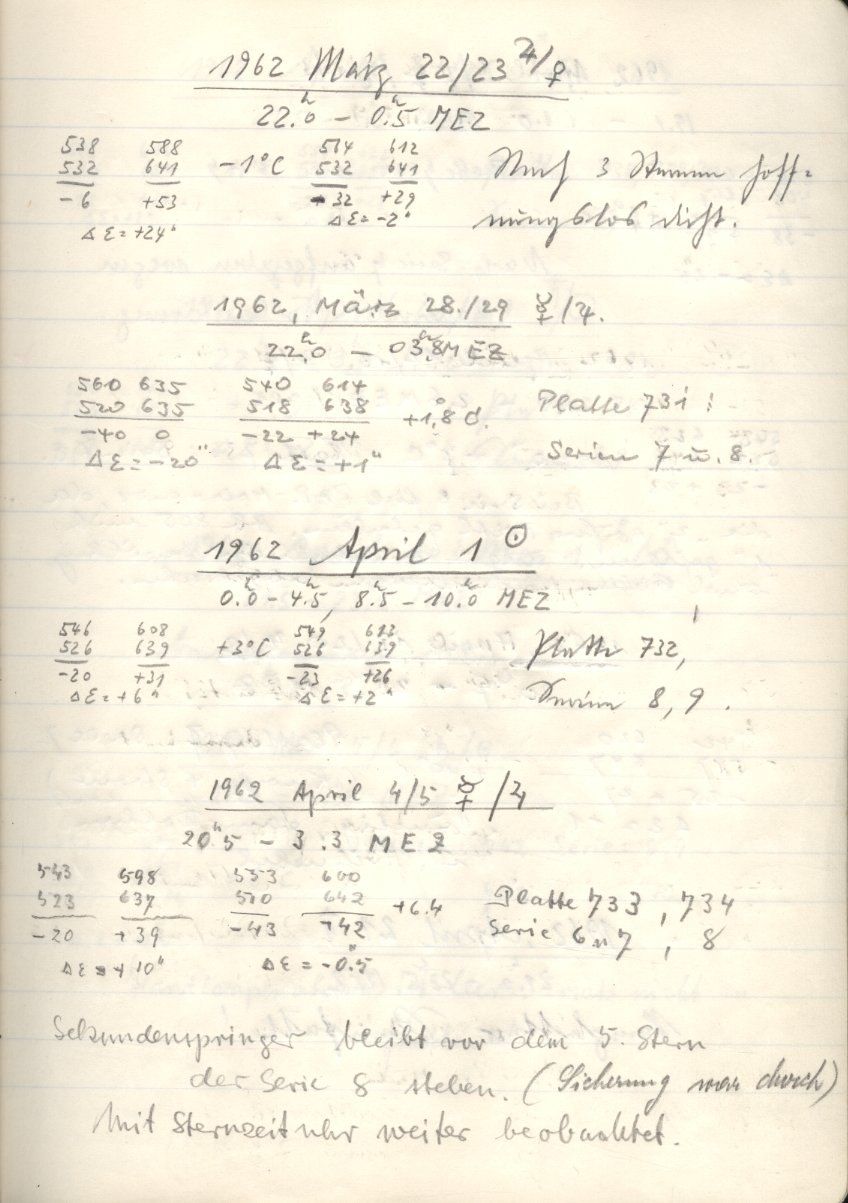 1962 März 22/23 ♃/♀
22.ʰ0 – 0.ʰ5 MEZ
538 588 514 612
532 641 –1°C 532 641
–6 +53 +29
Δε=+24" Δε=–2"
Nach 3 Sternen hoff=
nungslos dicht.
1962, März 28./29 ☿/♃.
22.ʰ0 – 03.ʰ8 MEZ
560 635 540 614
520 635 518 638 +1,8° C. Platte 731 :
–40 0 –22 +24
Δε=–20" Δε=+1" Serien 7 u. 8.
1962 April 1 ☉
0.ʰ0 – 4.ʰ5, 8.ʰ5 – 10.ʰ0 MEZ
546 608 549 613
526 639 +3°C 526 639 Platte 732,
–20 +31 –23 +26
Δε=+6" Δε=+2" Serien 8, 9.
1962 April 4/5 ☿/♃
20ʰ5 – 3.3 MEZ
543 598 553 600
523 637 510 642 +6.4 Platte 733, 734
–20 +39 –43 +42 Serie 6 u 7, 8
Δε=+10" Δε=–0.″5
Sekundenspringer bleibt vor dem 5. Stern
der Serie 8 stehen. (Sicherung war durch)
Mit Sternzeituhr weiter beobachtet.